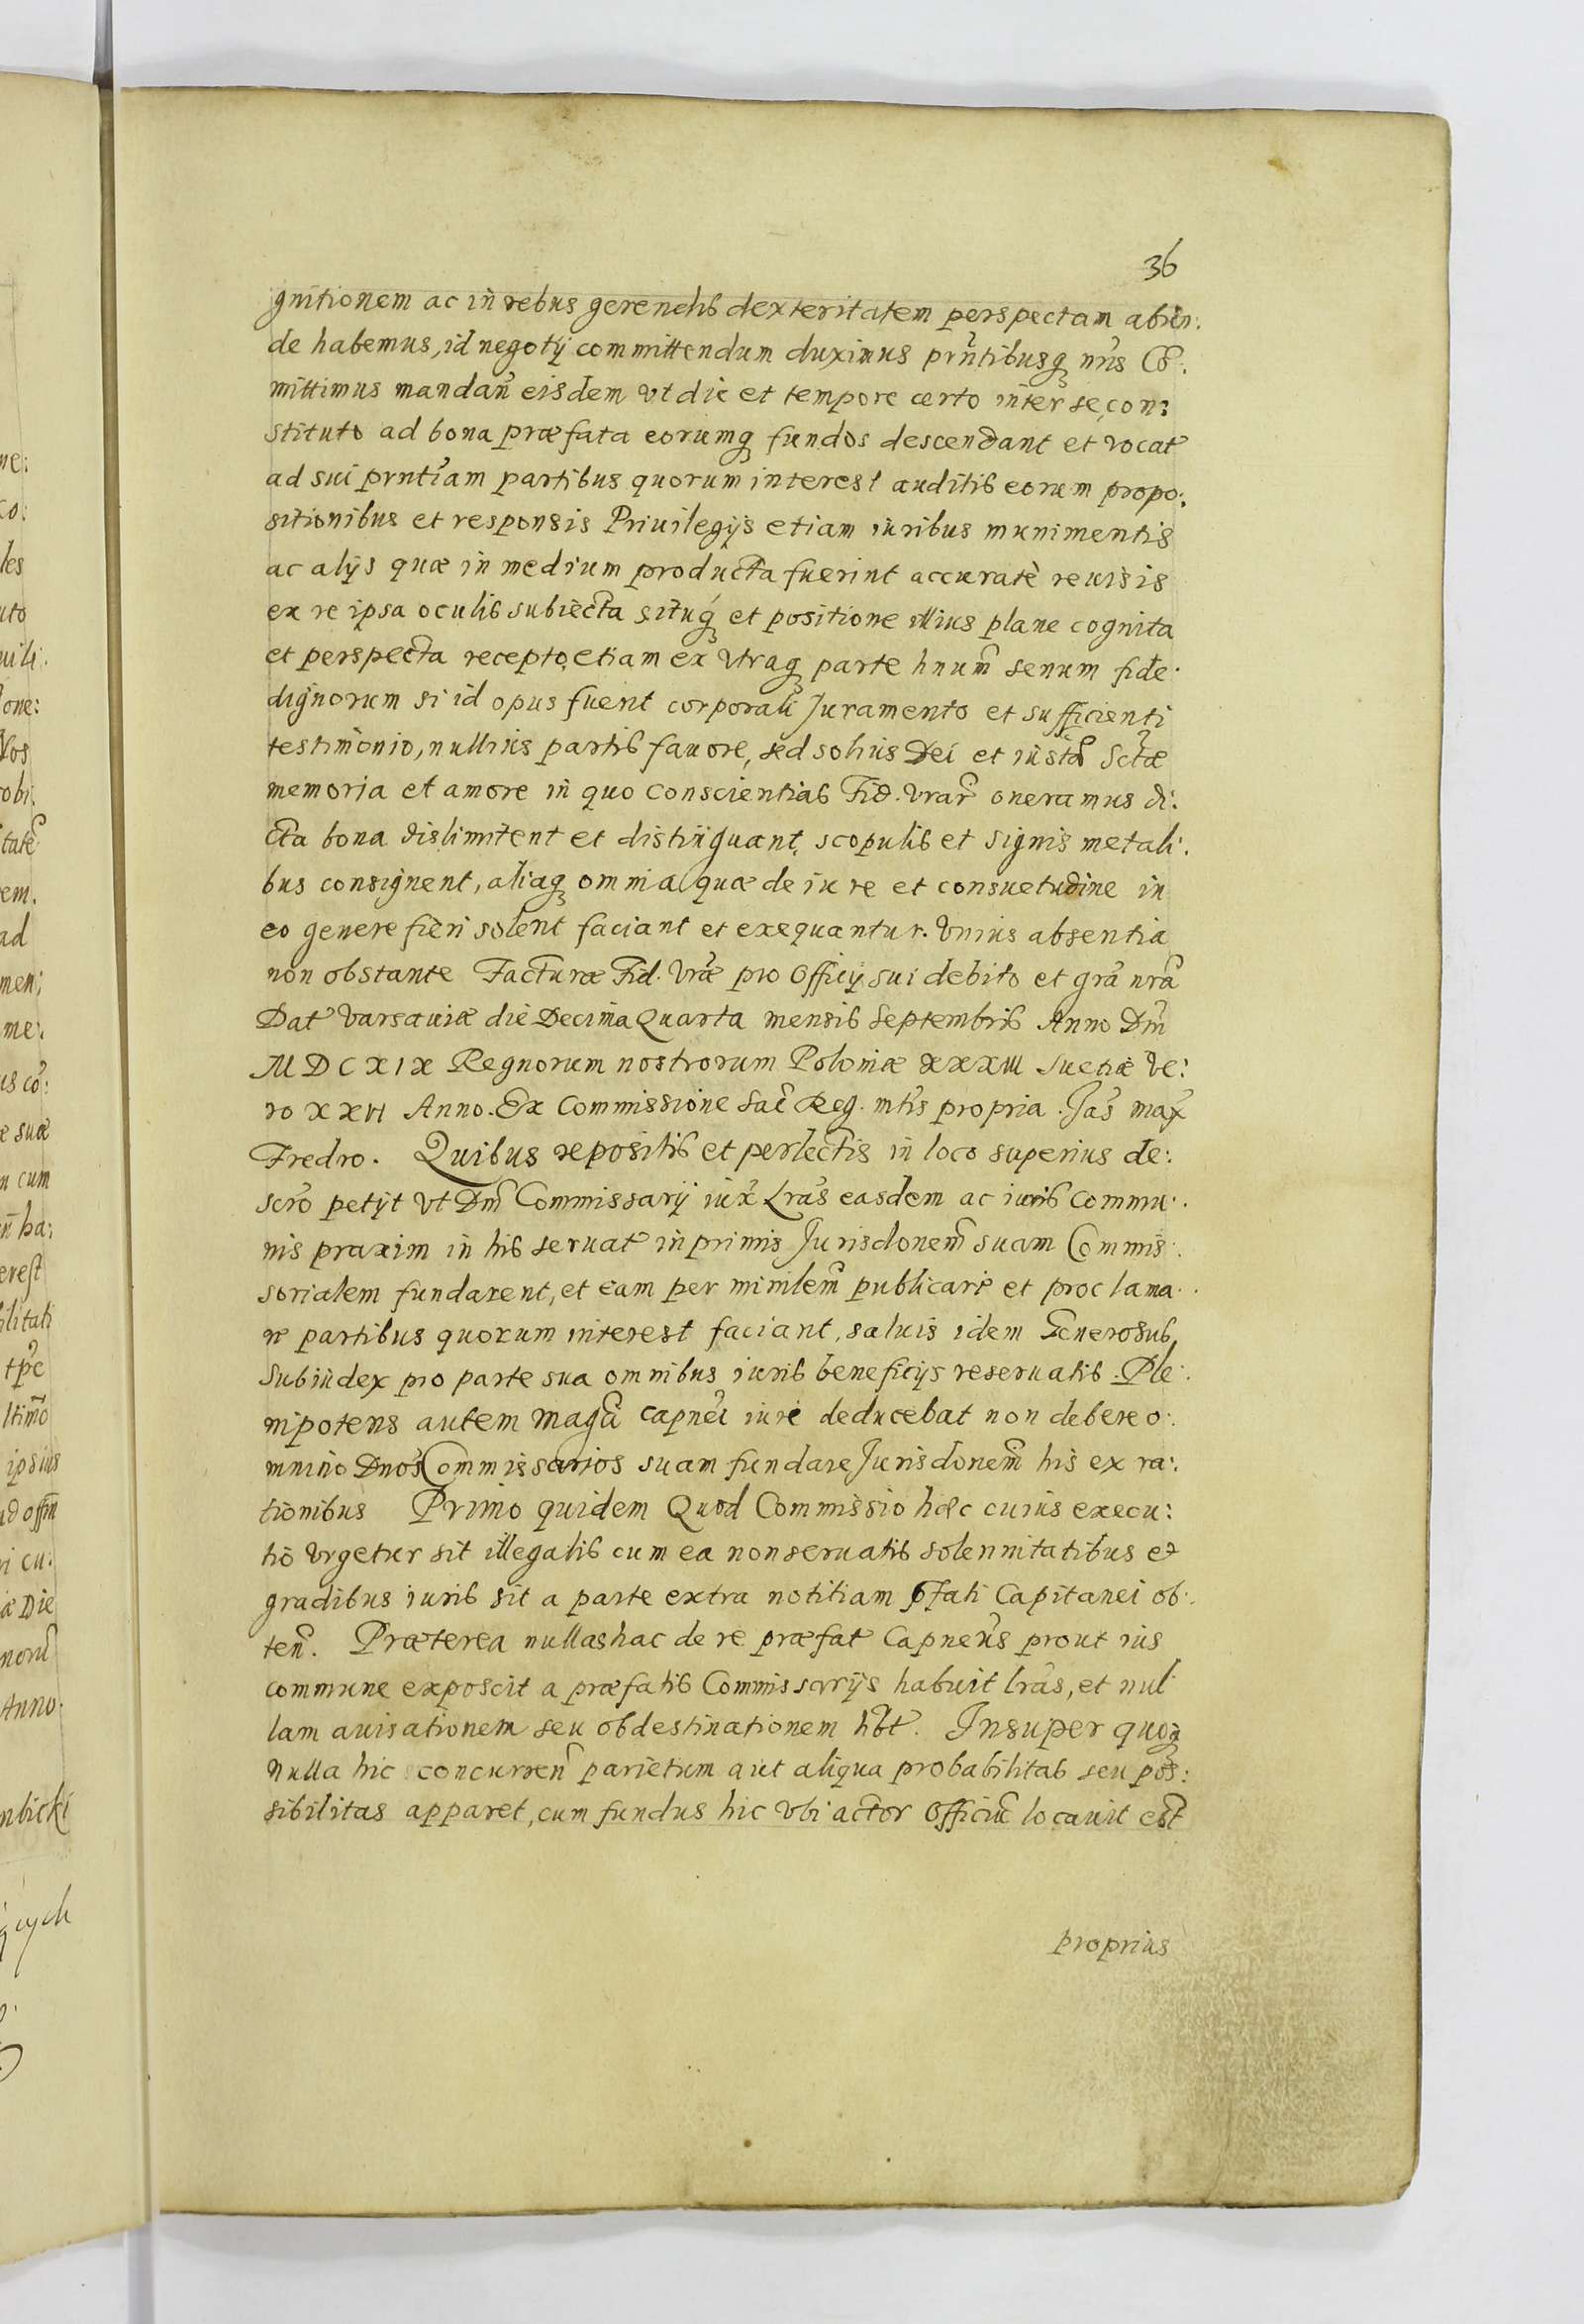 36
gnitionem ac in rebus gerendis dexteritatem perspectam abun:
de habemus, id negotij committendum duximus prñtibusq nris Cõ:
mittimus mandan̄ eisdem vt die et tempore certo inter se con:
stituto ad bona præfata eorumq fundos descendant et vocat
ad sui prntiam partibus quorum interest auditis eorum propo:
sitionibus et responsis Priuilegijs etiam iuribus munimentis
ac alijs quæ in medium producta fuerint accuratè reuisis
ex re ipsa oculis subiecta situq et positione illius plane cognita
et perspecta recepto etiam ex vtraq parte hnum senum fide:
dignorum si id opus fuerit corporali Juramento et sufficienti
testimonio, nullius partis fauore, sed solius Dei et iustæ Sctæ
memoria et amore in quo conscientias Fid. vrar oneramus di:
cta bona dislimitent et distinguant, scopulis et signis metali:
bus consignent, aliaq omnia quæ de iure et consuetudine in
eo genere fieri solent faciant et exequantur. vnius absentia
non obstante Facturæ Fid. vræ pro Officij sui debito et grã nrã
Dat varsauiæ die Decima Quarta mensis Septembris Anno Dm̄
MDCXIX Regnorum nostrorum Poloniæ XXXII Suetiæ ve:
ro XXVI Anno. Ex Commissione Sac Reg. mtis propria. Jas max
Fredro. Quibus repositis et perlectis in loco superius de:
scro petijt vt Dm̄ Commissarij iux Lras easdem ac iuris commu:
nis praxim in his seruat inprimis Jurisdonem suam Commis:
sorialem fundarent, et eam per minilem publicari et proclama:
re partibus quorum interest faciant, saluis idem Generosus,
Subiudex pro parte sua omnibus iuris beneficijs reseruatis. Ple:
nipotens autem magci capnei iure deducebat non debere o:
mnino Dnos Commissarios suam fundare Jurisdonem his ex ra:
tionibus Primo quidem Quod Commissio hæc cuius execu:
tio vrgetur sit illegalis cum ea non seruatis solennitatibus et
gradibus iuris sit a parte extra notitiam pfati Capitanei ob:
ten. Præterea nullas hac de re præfat Capneus prout ius
commune exposcit a præfatis Commissarijs habuit lras, et nul
lam auisationem seu obdestinationem hbt. Insuper quoq
nulla hic concurren parietum aut aliqua probabilitas seu pos:
sibilitas apparet, cum fundus hic vbi actor Officiu locauit est
proprius